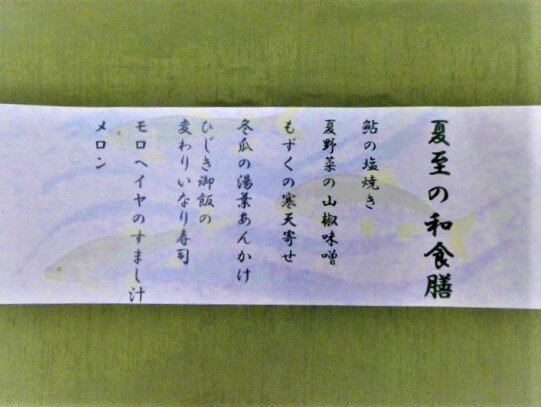 夏至の和食膳
鮎の塩焼き
夏野菜の山椒味噌
もずくの寒天寄せ
冬瓜の湯葉あんかけ
ひじき御飯の
変わりいなり寿司
モロヘイヤのすまし汁
メロン